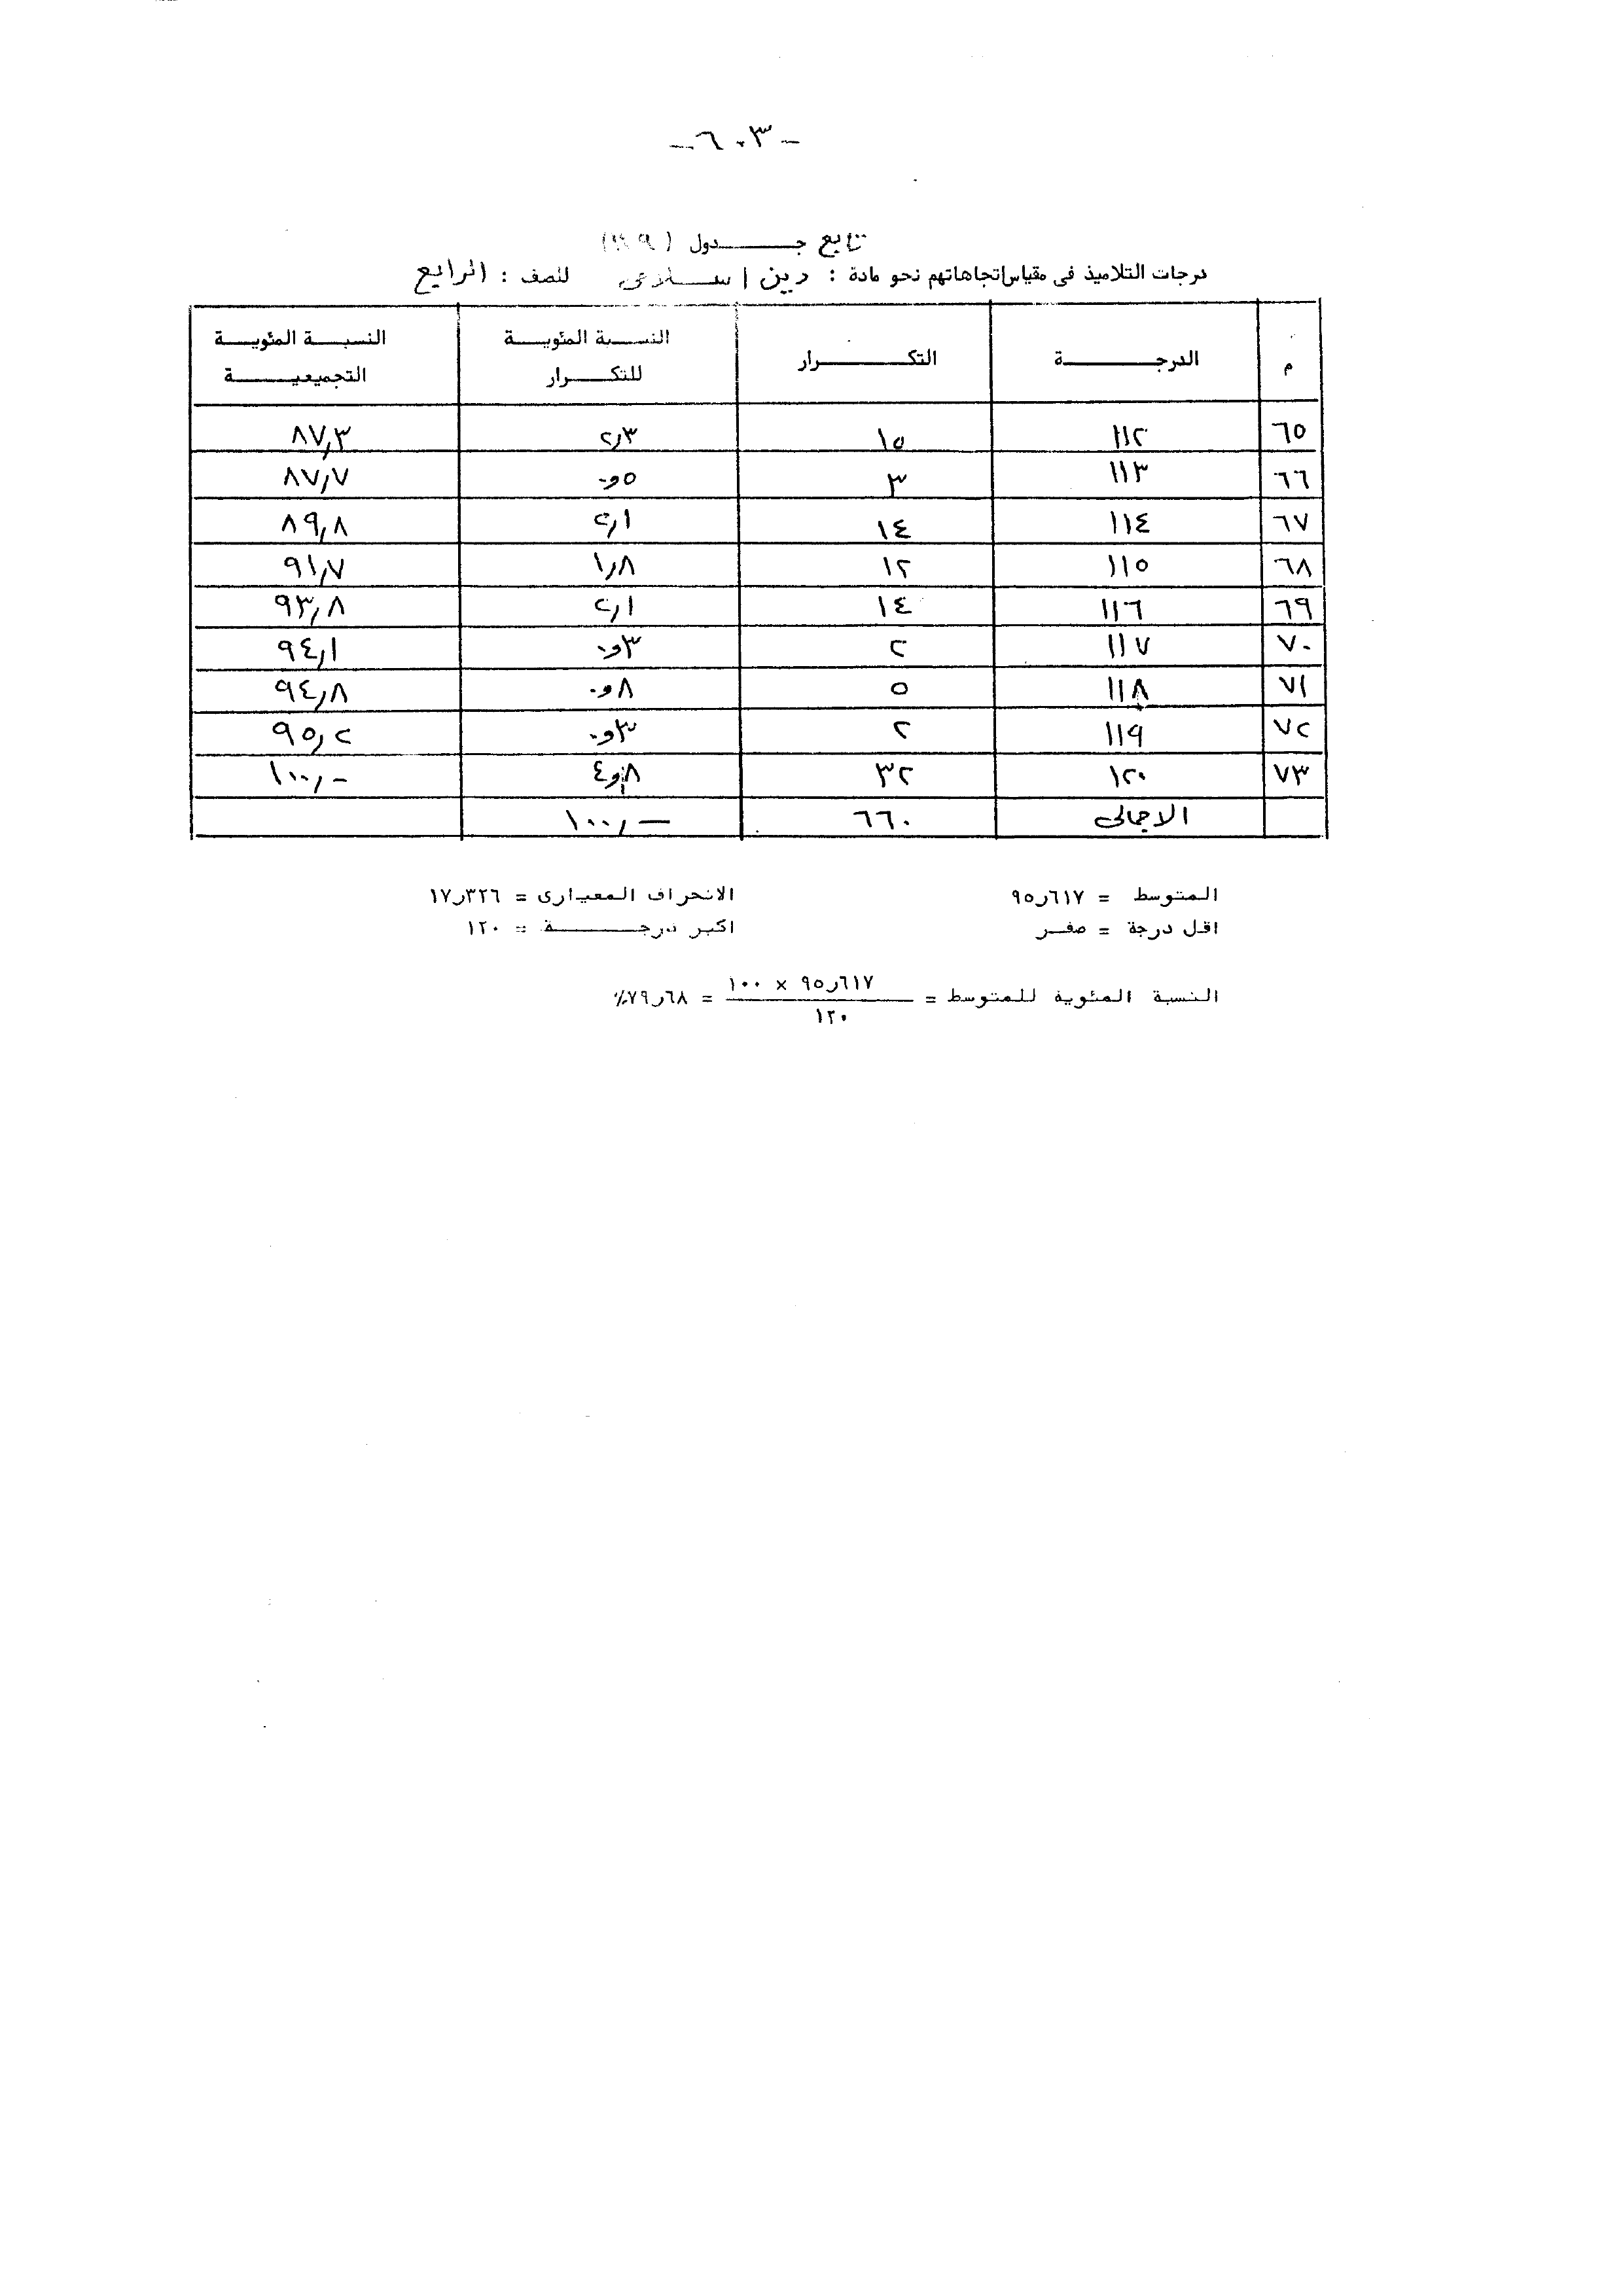 - ٦٠٣ -
تابع جدول (
درجات التلاميذ فى مقياس اتجاهاتهم نحو مادة : دين اسلامى للصف : الرابع
م الدرجة التكرار النسبة المئوية للتكرار النسبة المئوية التجميعية
٦٥ ١١٢ ١٥ ٢٫٣ ٨٧٫٣
٦٦ ١١٣ ٣ ٠٫٥ ٨٧٫٧
٦٧ ١١٤ ١٤ ٢٫١ ٨٩٫٨
٦٨ ١١٥ ١٢ ١٫٨ ٩١٫٧
٦٩ ١١٦ ١٤ ٢٫١ ٩٣٫٨
٧٠ ١١٧ ٢ ٠٫٣ ٩٤٫١
٧١ ١١٨ ٥ ٠٫٨ ٩٤٫٨
٧٢ ١١٩ ٢ ٠٫٣ ٩٥٫٢
٧٣ ١٢٠ ٣٢ ٤٫٨ ١٠٠٫-
الاجمالى ٦٦٠ ١٠٠٫-
المتوسط = ٩٥٫٦١٧ الانحراف المعيارى = ١٧٫٣٢٦
اقل درجة = صفر اكبر درجة = ١٢٠
النسبة المئوية للمتوسط = ٩٥٫٦١٧ × ١٠٠ / ١٢٠ = ٧٩٫٦٨٪